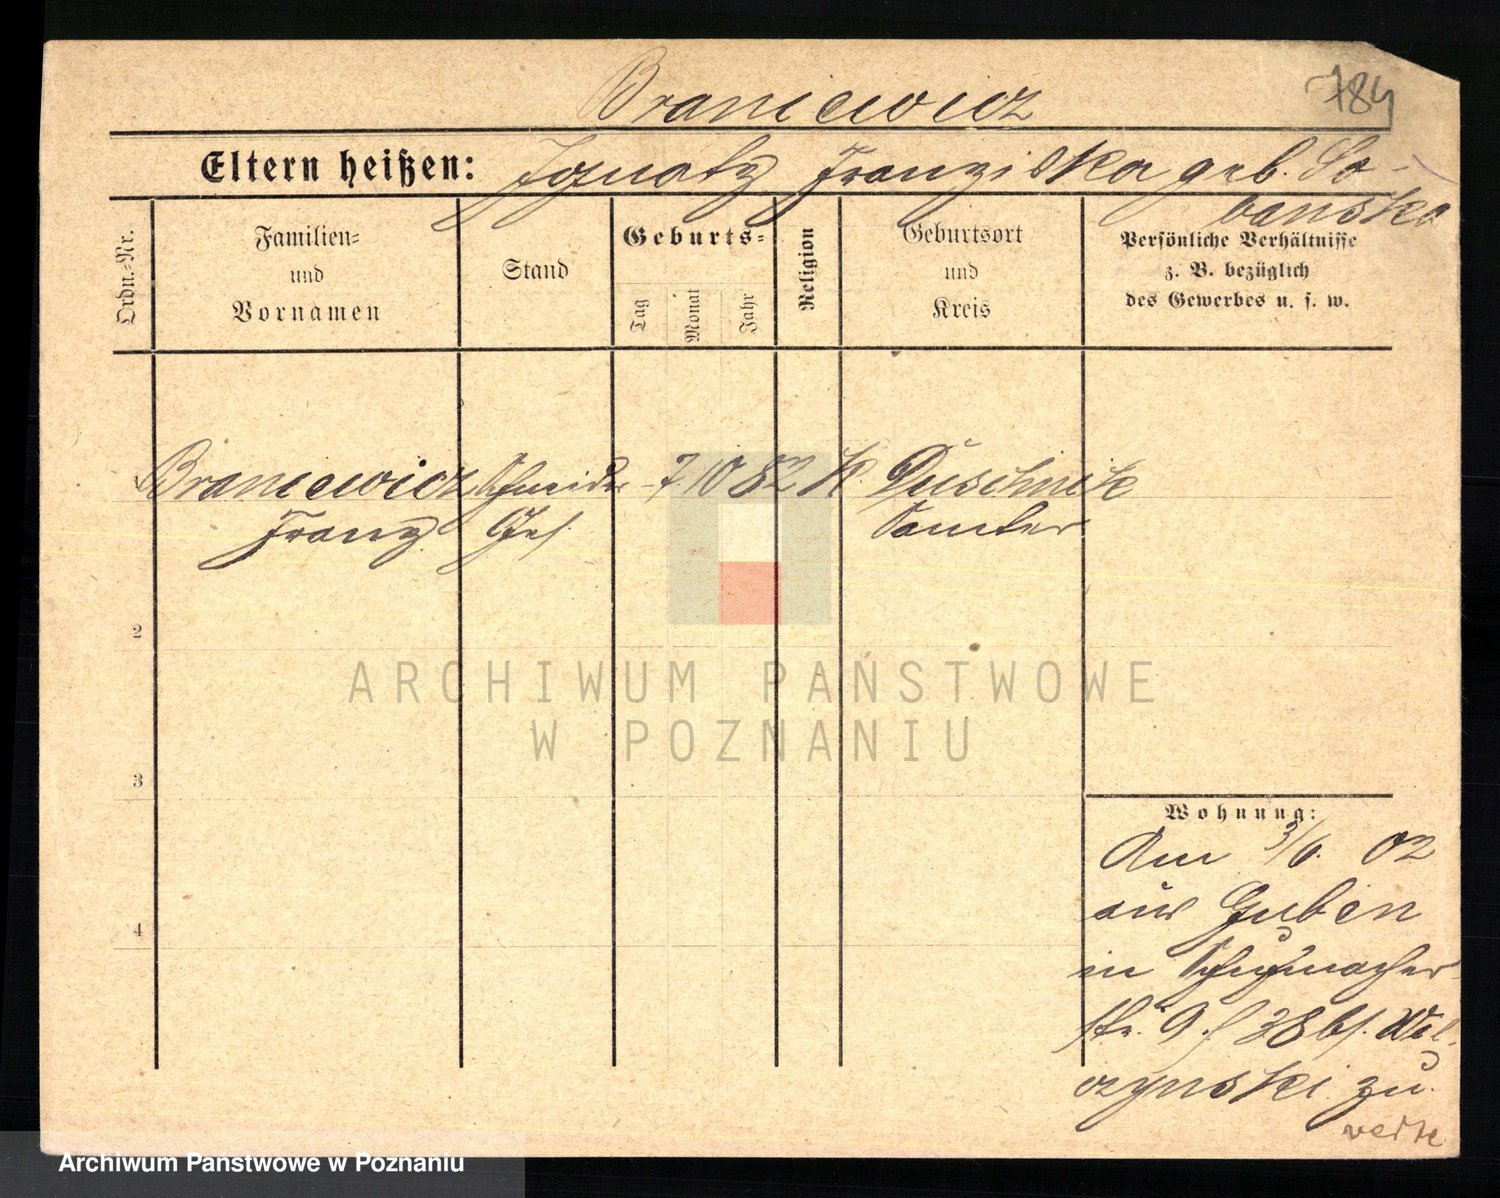 784
Braniewicz
Eltern heißen: Ignatz Franziska geb. So-
banska
Ordn.-Nr.
Familien-
und
Vornamen
Stand
Geburts-
Tag
Monat
Jahr
Religion
Geburtsort
und
Kreis
Persönliche Verhältnisse
z. B. bezüglich
des Gewerbes u. s. w.
Braniewicz Schneider 7 10 82 K. Duschnik
Franz Ges. Samter
2
3
4
Wohnung:
Am 3/6. 02
aus Guben
in Schuhmacher
str. 9 38 bs. Wel-
czynski zu.
verte
ARCHIWUM PAŃSTWOWE
W POZNANIU
Archiwum Państwowe w Poznaniu